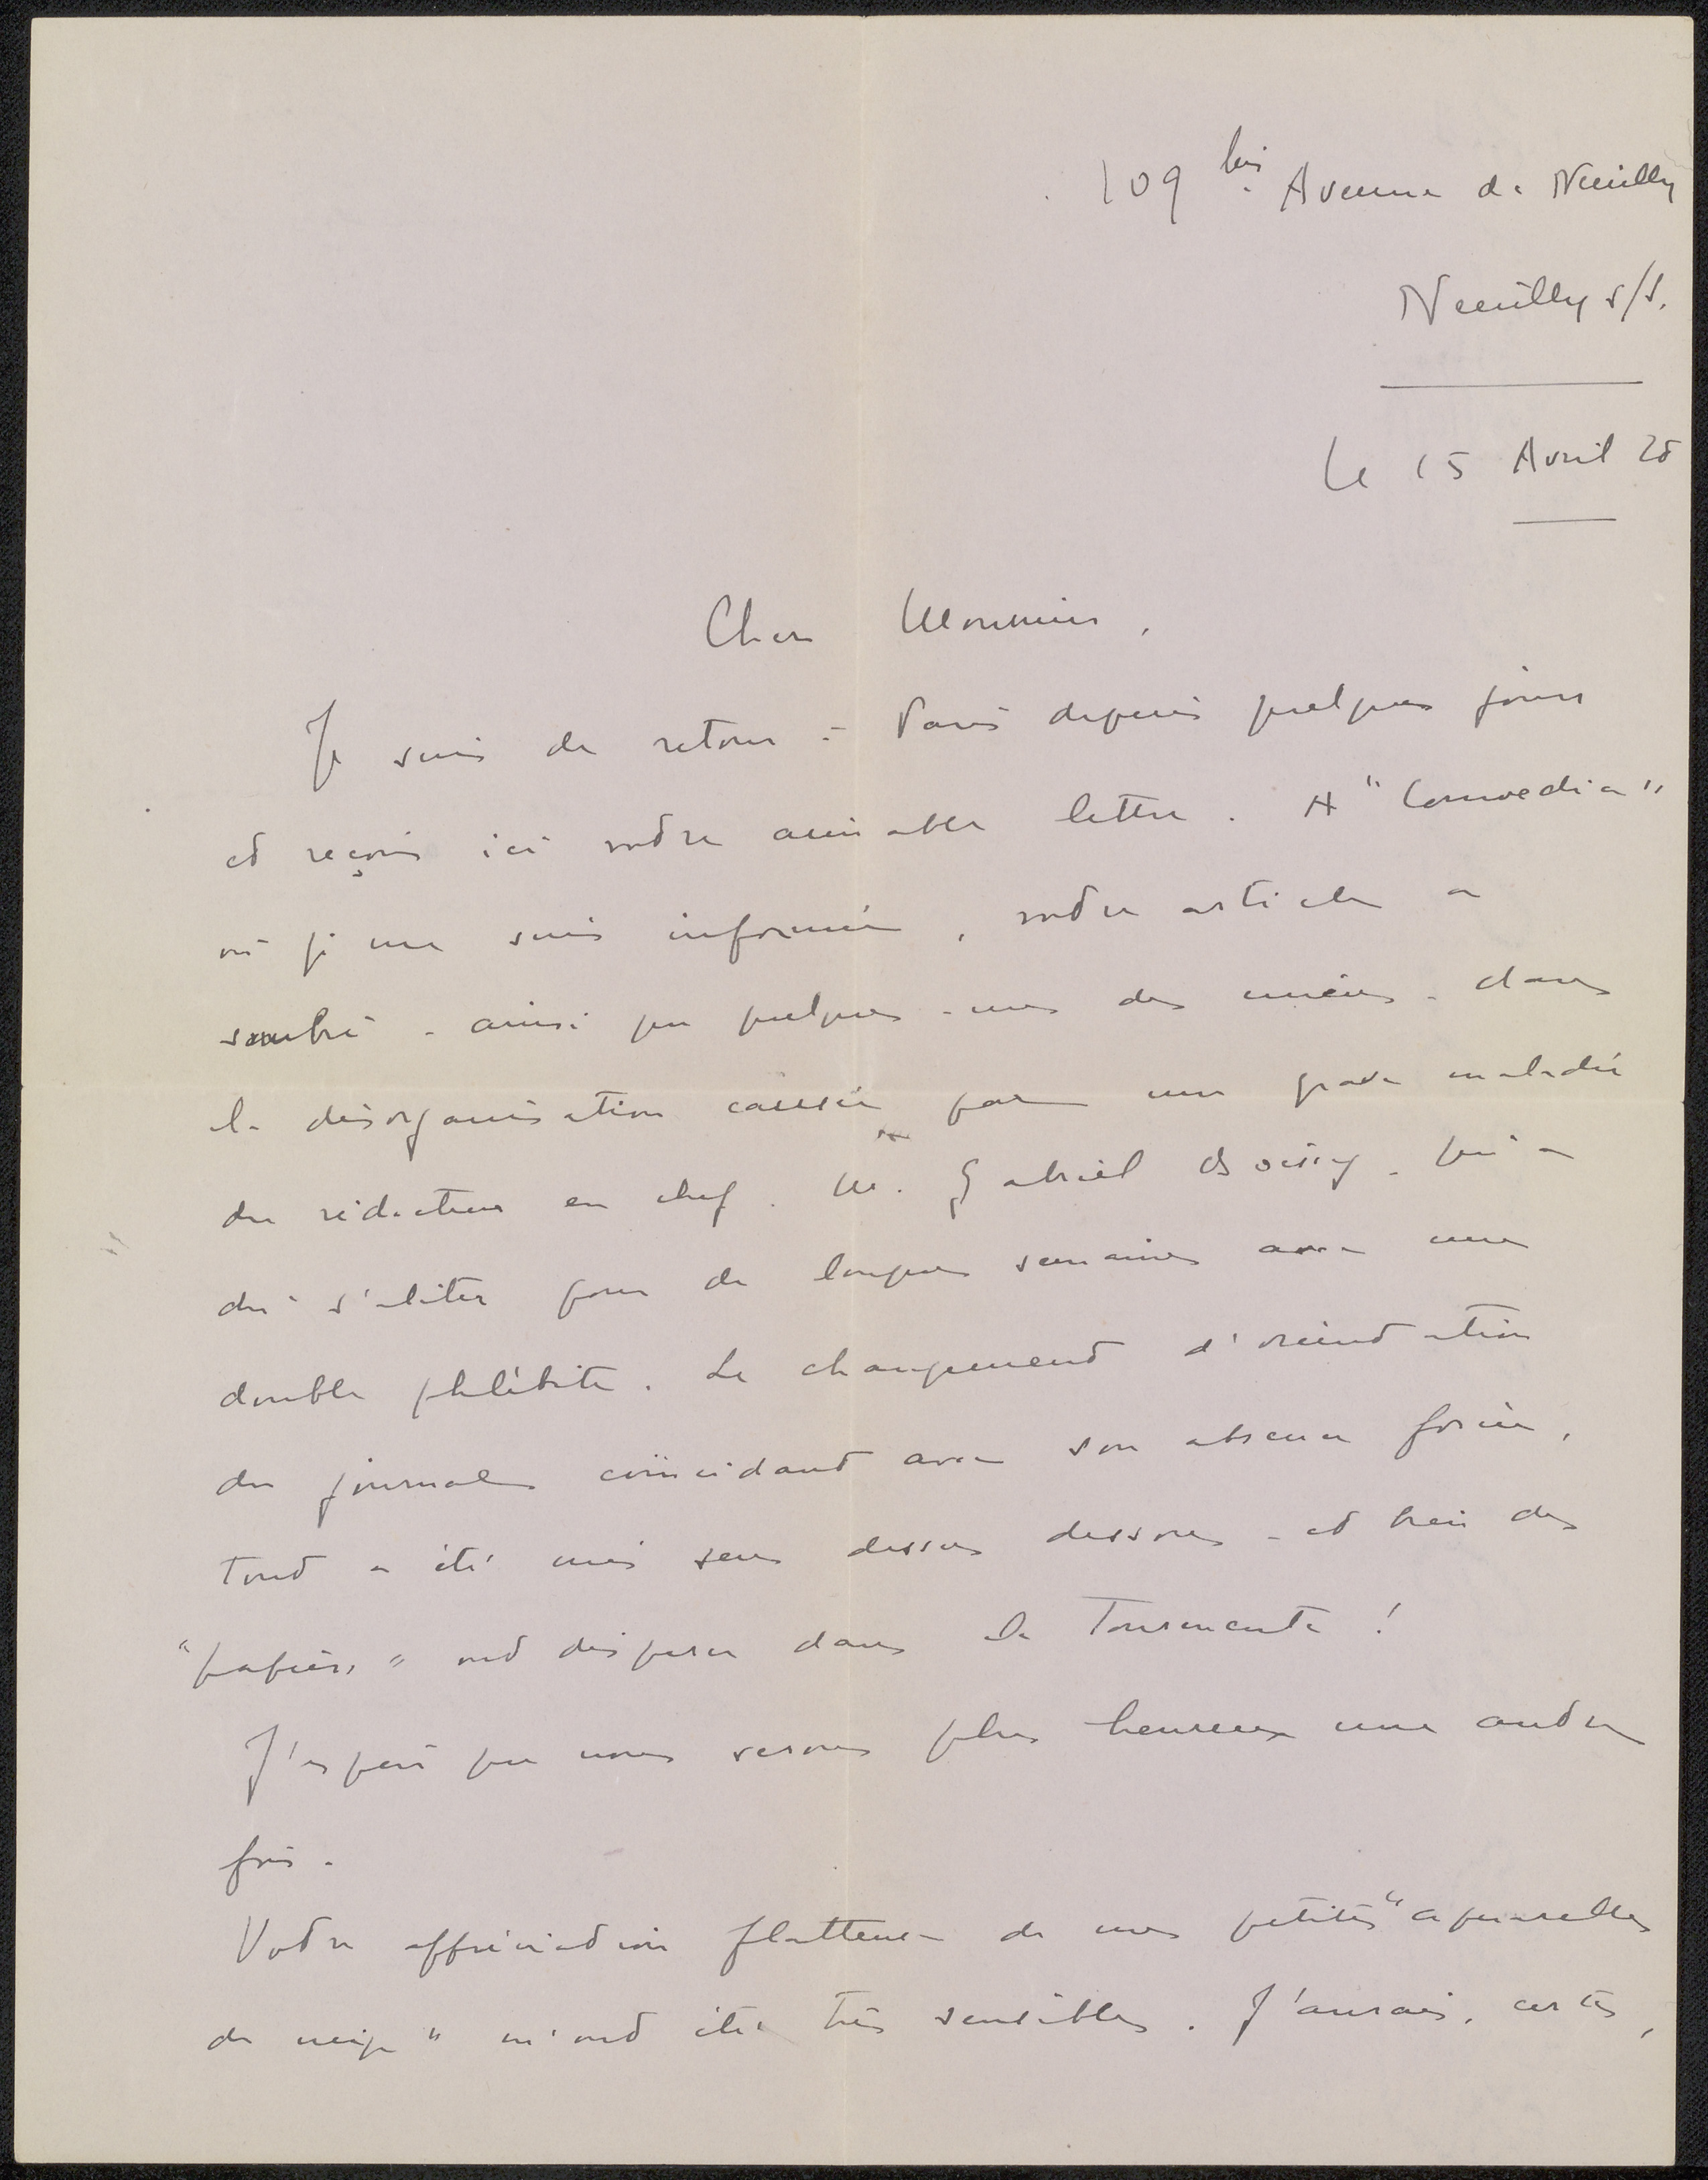 109 bis Avenue de Neuilly
Neuilly s/S.
Le 15 Avril 28
Cher Monsieur,
Je suis de retour à Paris depuis quelques jours
et reçois ici votre aimable lettre. A "Comoedia"
où je me suis informée, votre article a
sombré - ainsi que quelques-uns des miens - dans
la désorganisation causée par une grave maladie
du rédacteur en chef. M. Gabriel Boissy - qui a
dû s'aliter pour de longues semaines avec une
double phlébite. Le changement d'orientation
du journal coïncidant avec son absence forcée,
tout a été mis sens dessus dessous - et bien des
"papiers" ont disparu dans la Tourmente !
J'espère que nous serons plus heureux une autre
fois.
Votre appréciation flatteuse de mes petites "aquarelles
de neige" m'ont été très sensibles. J'aurais, certes,